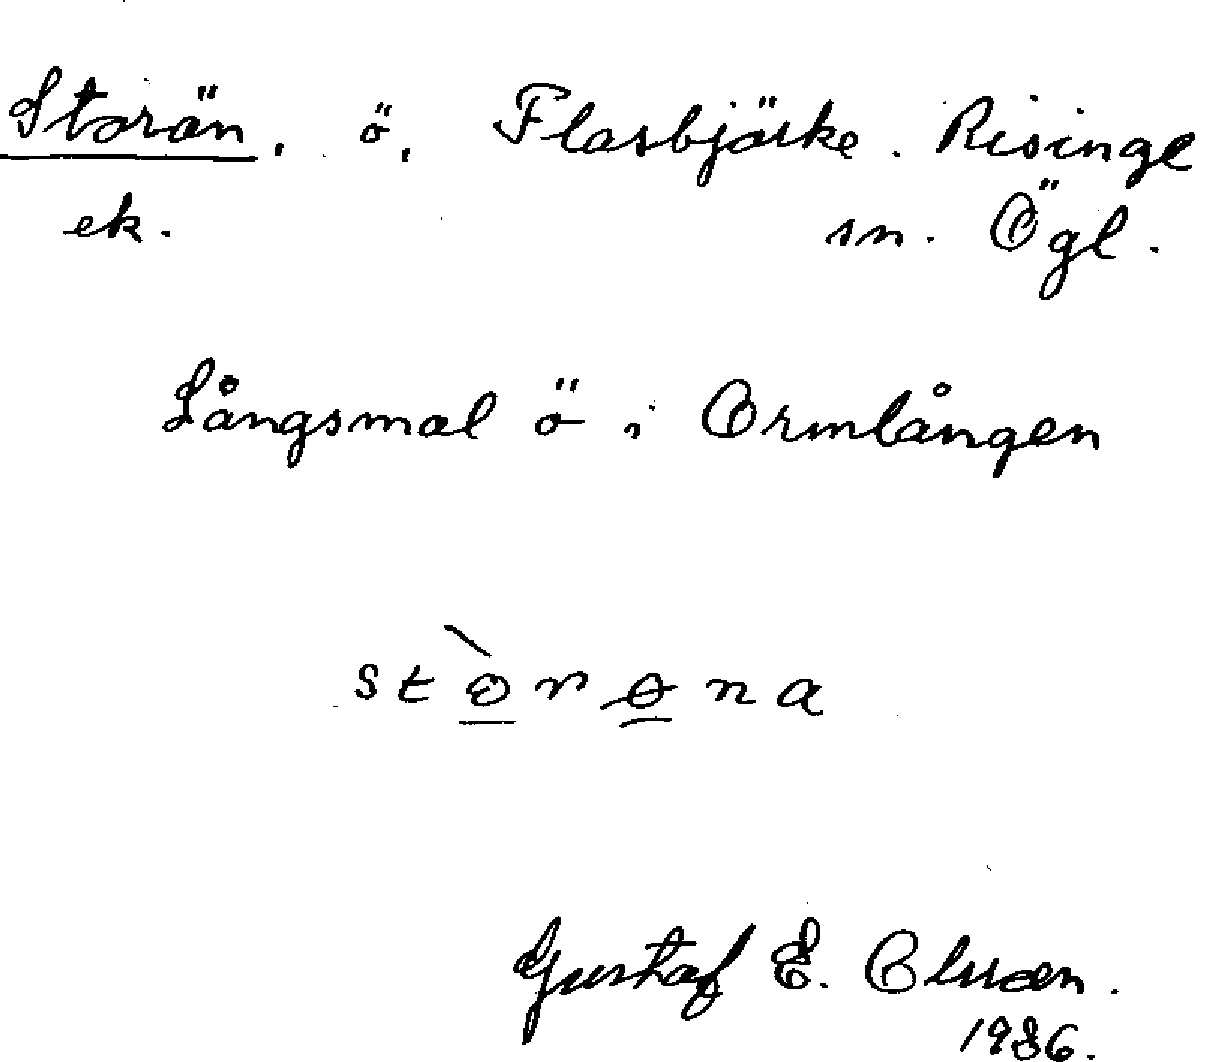 Storön, ö, Flasbjörke. Risinge
ek. sn. Ögl.
Långsmal ö i Ormlången
stò̱rɵ̱na
Gustaf E. Olson.
1936.